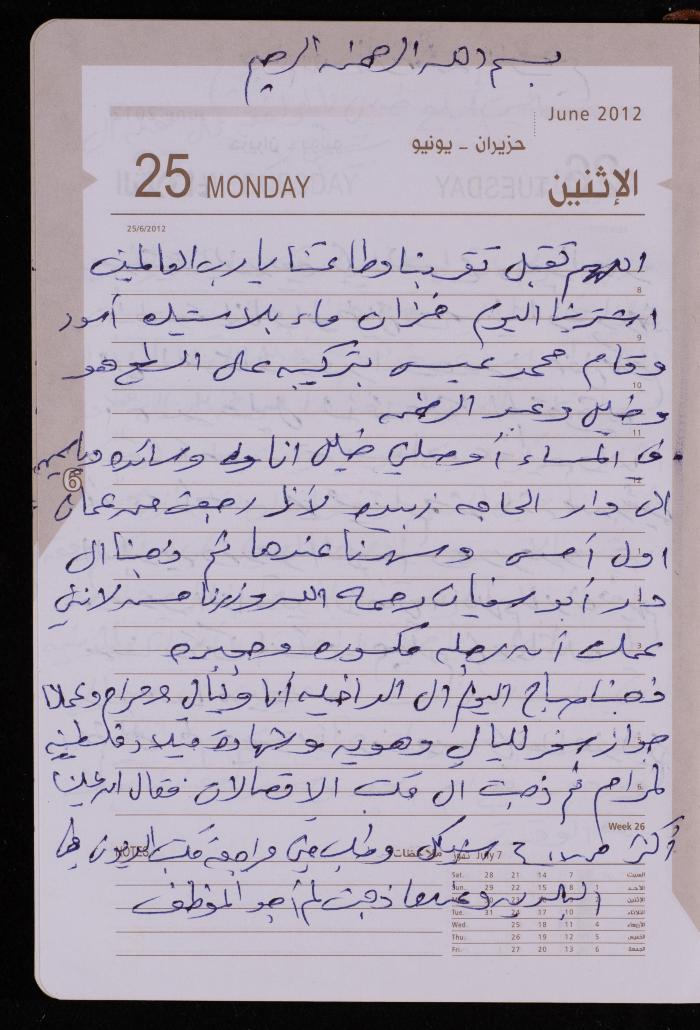 بسم الله الرحمن الرحيم
June 2012
حزيران - يونيو
25 MONDAY
الإثنين
25/6/2012
اللهم تقبل توبتنا وطاعتنا يا رب العالمين
اشترينا اليوم خزان ماء بلاستيك أسود
وقام محمد عيسى بتركيبه على السطح هو
وخليل وعبد الرحمن
في المساء أوصلني خليل انا وسائده وياسمين
6
الى دار الحاجه زبيده لأنها رجعت من عمان
اول أمس وسهرنا عندها ثم ذهبنا الى
دار أبو سفيان رحمه الله وزرنا لانني
علمت أن رجله مكسوره ومجبره
ذهبنا صباح اليوم الى الداخليه أنا وليالي ومرام وعملنا
جواز سفر لليالي وهويه وشهادة ميلاد فلسطينيه
لمرام ثم ذهبت الى مكتب الاتصالات فقال ان علينا
Week 26
أكثر من شيكل وطلب مني مراجعة مكتب في
NOTES ملاحظات
July 7 تموز
البلديه وعندما ذهبت لم أجد الموظف
Sat. 28 21 14 7 السبت
Sun. 29 22 15 8 1 الأحد
30 23 16 9 2 الإثنين
Tue. 31 24 17 10 3 الثلاثاء
Wed. 25 18 11 4 الأربعاء
Thu. 26 19 12 5 الخميس
Fri. 27 20 13 6 الجمعة